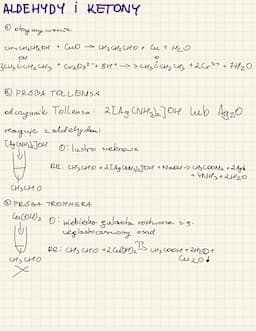 ALDEHYDY i KETONY
① otrzymywanie
CH₃CH₂OH + CuO → CH₃CHO + Cu + H₂O
OH O
3CH₃CHCH₃ + Cr₂O₇²⁻ + 8H⁺ → 3CH₃CCH₃ + 2Cr³⁺ + 7H₂O
② PRÓBA TOLLENSA
odczynnik Tollensa: 2[Ag(NH₃)₂]OH lub Ag₂O
reaguje z aldehydami
[Ag(NH₃)₂]OH O: lustro srebrowe
RR: CH₃CHO + 2[Ag(NH₃)₂]OH + NaOH → CH₃COONa + 2Ag↓
+ 4NH₃ + 2H₂O
CH₃CHO
③ PRÓBA TROMMERA
Cu(OH)₂ O: niebieska galareta roztwarza się
ceglastoczerwony osad
RR: CH₃CHO + 2Cu(OH)₂ → CH₃COOH + 2H₂O +
CH₃CHO Cu₂O↓